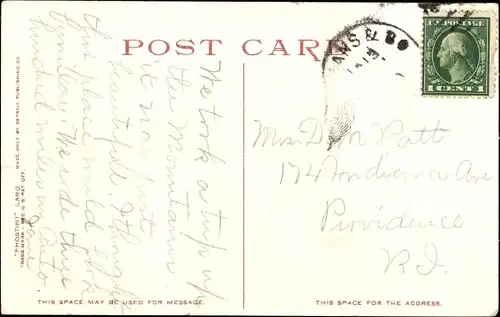 POST CARD
ANS & BO
U.S. POSTAGE
1 CENT 1
We took a trip up
the Mountains.
it was just
beautiful. I thought
this place would look
familiar. We rode three
hundred miles in Auto.
Jane
Mrs. D. M. Patt
174 Indiana Ave
Providence
R.I.
"PHOSTINT" CARD.
TRADE MARK REG. U.S. PAT. OFF.
MADE ONLY BY DETROIT PUBLISHING CO.
THIS SPACE MAY BE USED FOR MESSAGE.
THIS SPACE FOR THE ADDRESS.